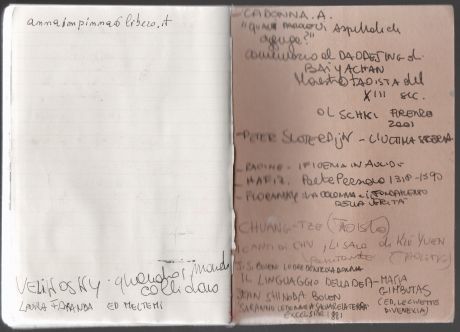 annaimpinna@libero.it
VELIKOSKY - quando i mondi
collidono
LAURA FARANDA ED MELTEMI
- CADONNA. A.
"QUALI PAROLE VI ASPETTATE CHE
AGGIUNGA?"
commentario al DAODEJING di
BAI YUCHAN
Maestro TAOISTA del
XIII SEC.
OLSCHKI FIRENZE
2001
- PETER SLOTERDIJK - L'ULTIMA SFERA
- RACINE - IFIGENIA IN AULIDE
- HAFIZ. Poeta Persiano 1318-1390
- FLORENSKY: LA COLONNA e IL FONDAMENTO
DELLA VERITÀ
CHUANG-TZE (TAOISTA)
I CANTI DI CHU, LI SAO di KIU YUEN
J.S. BOLEN LE DEE DENTRO LA DONNA
IL LINGUAGGIO DELLA DEA - MARIA
GIMBUTAS
JEAN SHINODA BOLEN (ED. LE CIVETTE
DI VENEXIA)